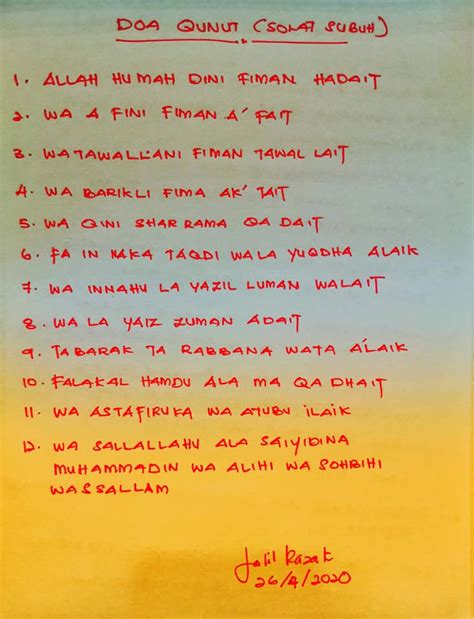 DOA QUNUT (SOLAT SUBUH)
1. ALLAH HU MAH DINI FIMAN HADAIT
2. WA A FINI FIMAN A' FAIT
3. WATAWALLANI FIMAN TAWAL LAIT
4. WA BARIKLI FIMA AK' TAIT
5. WA QINI SHAR RAMA QA DAIT
6. FA IN NAKA TAQDI WALA YUQDHA ALAIK
7. WA INNAHU LA YAZIL LUMAN WALAIT
8. WA LA YAIZ ZUMAN ADAIT
9. TABARAK TA RABBANA WATA A'LAIK
10. FALAKAL HAMDU ALA MA QA DHAIT
11. WA ASTAFIRUKA WA ATUBU ILAIK
12. WA SALLALLAHU ALA SAIYIDINA
MUHAMMADIN WA ALIHI WA SOHBIHI
WASSALLAM
Jalil Razak
26/4/2020